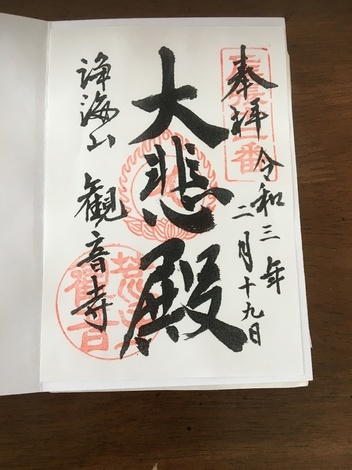 奉拝
令和三年
二月十九日
大悲殿
海山
観音寺